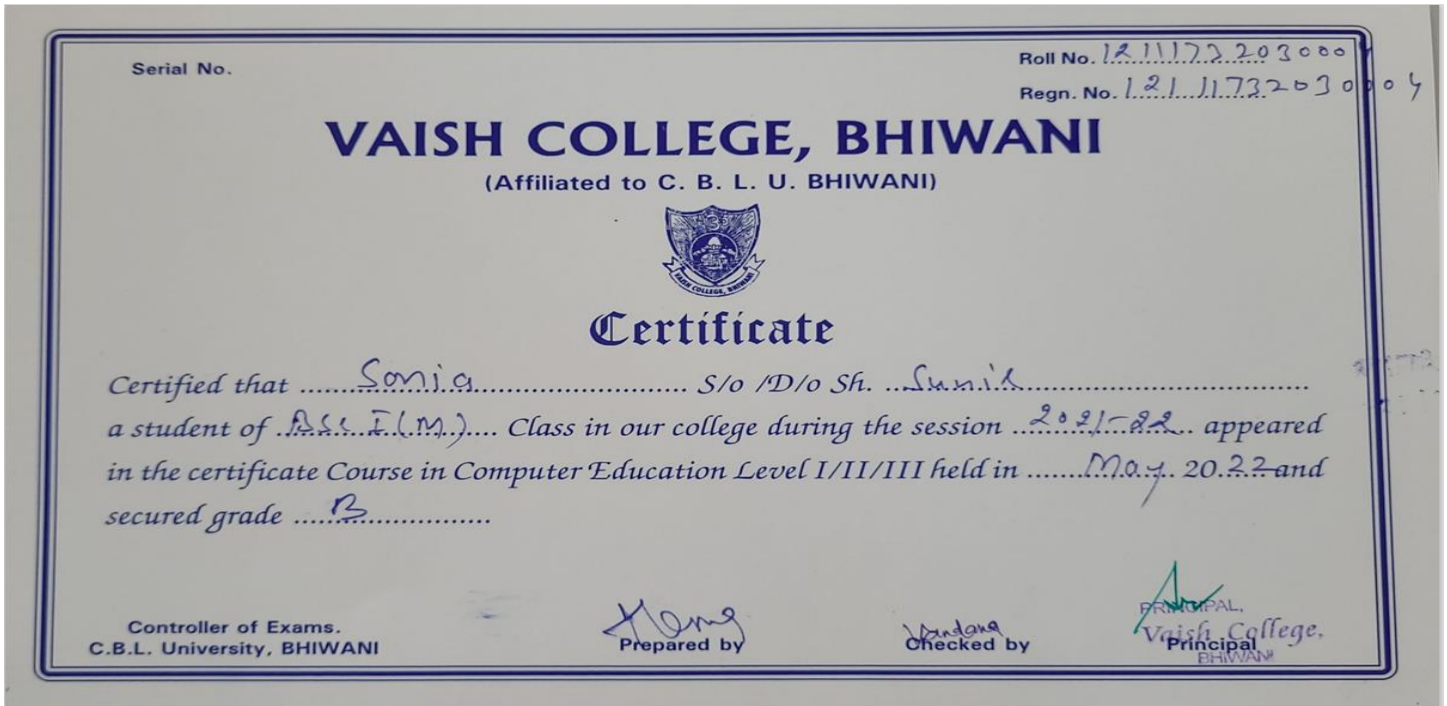 Serial No.
Roll No. 12111732030004
Regn. No. 12111732030004
VAISH COLLEGE, BHIWANI
(Affiliated to C. B. L. U. BHIWANI)
VAISH COLLEGE, BHIWANI
Certificate
Certified that ......Sonia.......................... S/o /D/o Sh. ..Sunil...................................
a student of .BSc I (M).... Class in our college during the session ..2021-22.. appeared
in the certificate Course in Computer Education Level I/II/III held in ......May.. 20.22 and
secured grade ....B....................
Controller of Exams.
C.B.L. University, BHIWANI
Prepared by
Vandana
Checked by
PRINCIPAL,
Vaish College,
Principal
BHIWANI